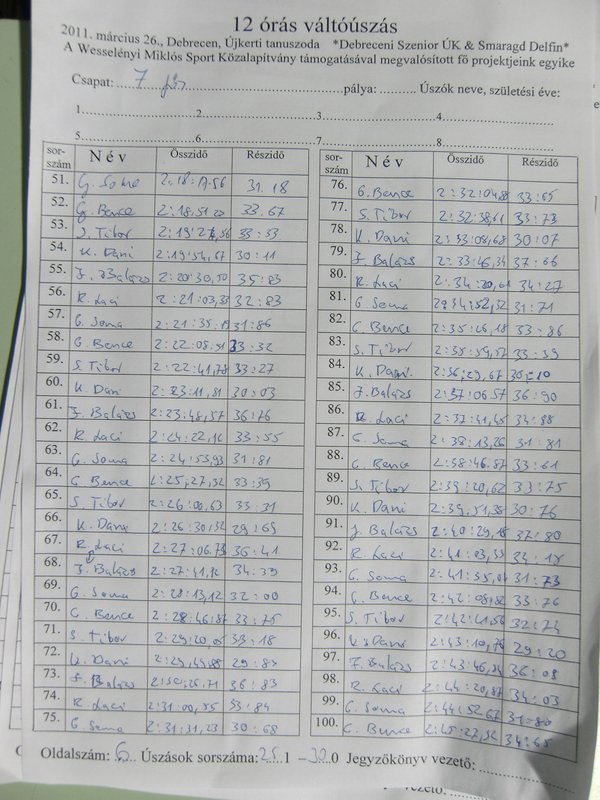 12 órás váltóúszás
2011. március 26., Debrecen, Újkerti tanuszoda *Debreceni Szenior ÚK & Smaragd Delfin*
A Wesselényi Miklós Sport Közalapítvány támogatásával megvalósított fő projektjeink egyike
Csapat: 7 pálya: Úszók neve, születési éve:
1. 2. 3. 4.
5. 6. 7. 8.
sor-szám Név Összidő Részidő
51. G. Soma 31.18
52. G. Bence 33.67
53. Tibor 33:53
54. K. Dani 30:11
55. Balázs 35:83
56. R. Laci 2:21:03,33 32:83
57. G. Soma 31:86
58. G. Bence 2:22:08:51 33:32
59. S. Tibor 2:22:41,78 33:27
60. K. Dani 30:03
61. Balázs 2:23:48,57 36:76
62. R. Laci 33:55
63. G. Soma 2:24:53,93 31:81
64. G. Bence 2:25:27,32 33:39
65. S. Tibor 2:26:00,63 33 31
66. K. Dani 29:69
67. R. Laci 2:27:06.73 36:41
68. Balázs 34:39
69. G. Soma 2:28:13,12 32:00
70. Bence
71. S. Tibor 33:18
72. K. Dani 29:83
73. Balázs 36:83
74. R. Laci 2:31:00,55 33:84
75. G. Soma 2:31:31,23 30:68
sor-szám Név Összidő Részidő
76. G. Bence 2:32:04,88 33:65
77. S. Tibor 2:32:38,61 33:73
78. K. Dani 30:07
79. Balázs 2:33:46,34 37:66
80. R. Laci 34:27
81. G. Soma 31:71
82. Bence 2:35:26,18 33:86
83. S. Tibor 33:39
84. K. Dani
85. Balázs 2:37:06:57 36:90
86. R. Laci 2:37:41,45 34:88
87. G. Soma 2:38:13,26 31:81
88. Bence 33:61
89. S. Tibor 2:39:20,62 33:75
90. K. Dani 2:39:51,38 30:76
91. Balázs 2:40:29,18 37:80
92. R. Laci 34:18
93. G. Soma 31:73
94. Bence 2:42:08,82 33:76
95. S. Tibor 2:42:41,56 32:74
96. K. Dani 2:43:10,76 29:20
97. Balázs 36:08
98. R. Laci 2:44:20,87 34:03
99. Soma 2:44:52,67 31:80
100. Bence 34:65
Oldalszám: 6 Úszások sorszáma: 1 – 0 Jegyzőkönyv vezető: